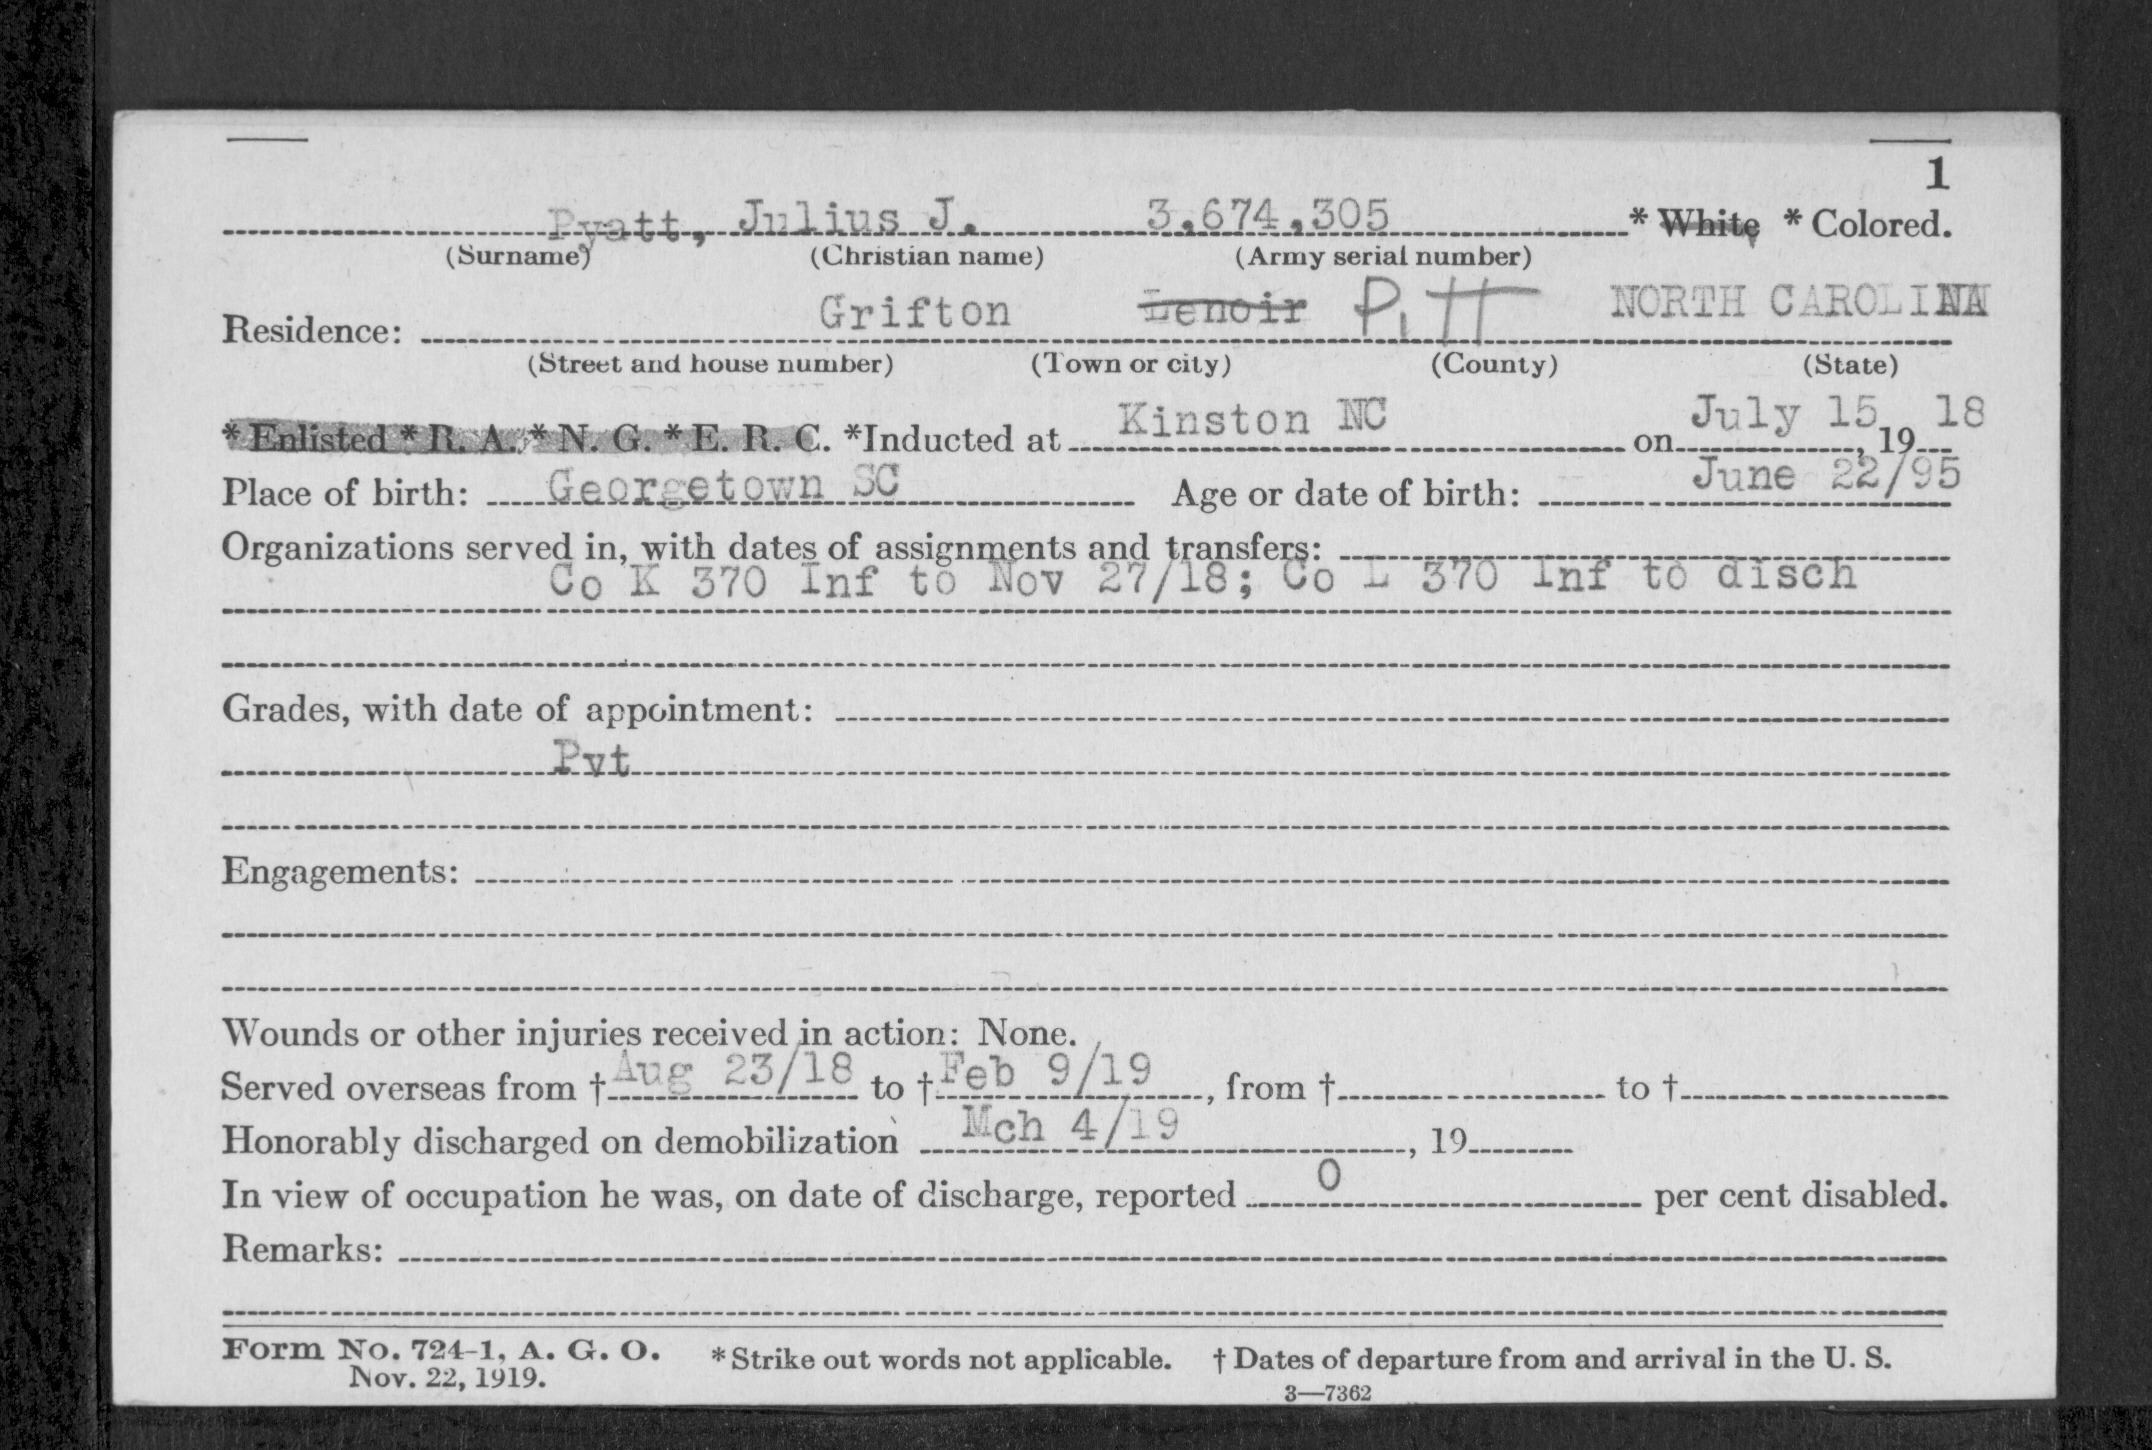 1
Pyatt, Julius J. 3,674,305 * White * Colored.
(Surname) (Christian name) (Army serial number)
Residence: Grifton Lenoir Pitt NORTH CAROLINA
(Street and house number) (Town or city) (County) (State)
* Enlisted * R. A. * N. G. * E. R. C. *Inducted at Kinston NC on July 15, 19 18
Place of birth: Georgetown SC Age or date of birth: June 22/95
Organizations served in, with dates of assignments and transfers:
Co K 370 Inf to Nov 27/18; Co L 370 Inf to disch
Grades, with date of appointment:
Pvt
Engagements:
Wounds or other injuries received in action: None.
Served overseas from † Aug 23/18 to † Feb 9/19, from † to †
Honorably discharged on demobilization Mch 4/19, 19
In view of occupation he was, on date of discharge, reported 0 per cent disabled.
Remarks:
Form No. 724-1, A. G. O. * Strike out words not applicable. † Dates of departure from and arrival in the U. S.
Nov. 22, 1919.
3—7362